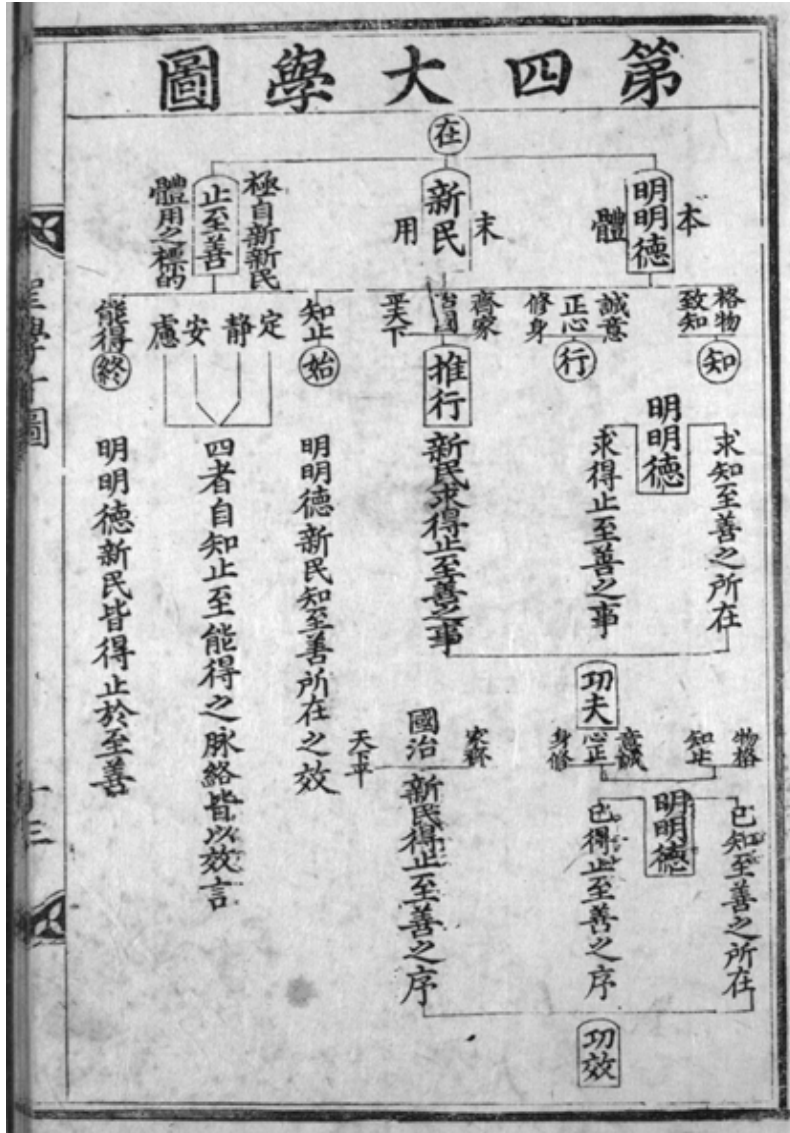 第四大學圖
在
本
明明德
體
末
新民
用
極自新新民
止至善
體用之標的
格物
致知
知
誠意
正心
修身
行
齊家
治國
平天下
推行
知止
始
定
靜
安
慮
能得
終
明明德
求知至善之所在
求得止至善之事
新民求得止至善之事
明明德新民知至善所在之效
四者自知止至能得之脉絡皆以效言
明明德新民皆得止於至善
功夫
物格
知止
意誠
心正
身修
家齊
國治
天下平
明明德
已知至善之所在
已得止至善之序
新民得止至善之序
功效
聖學十圖
十三